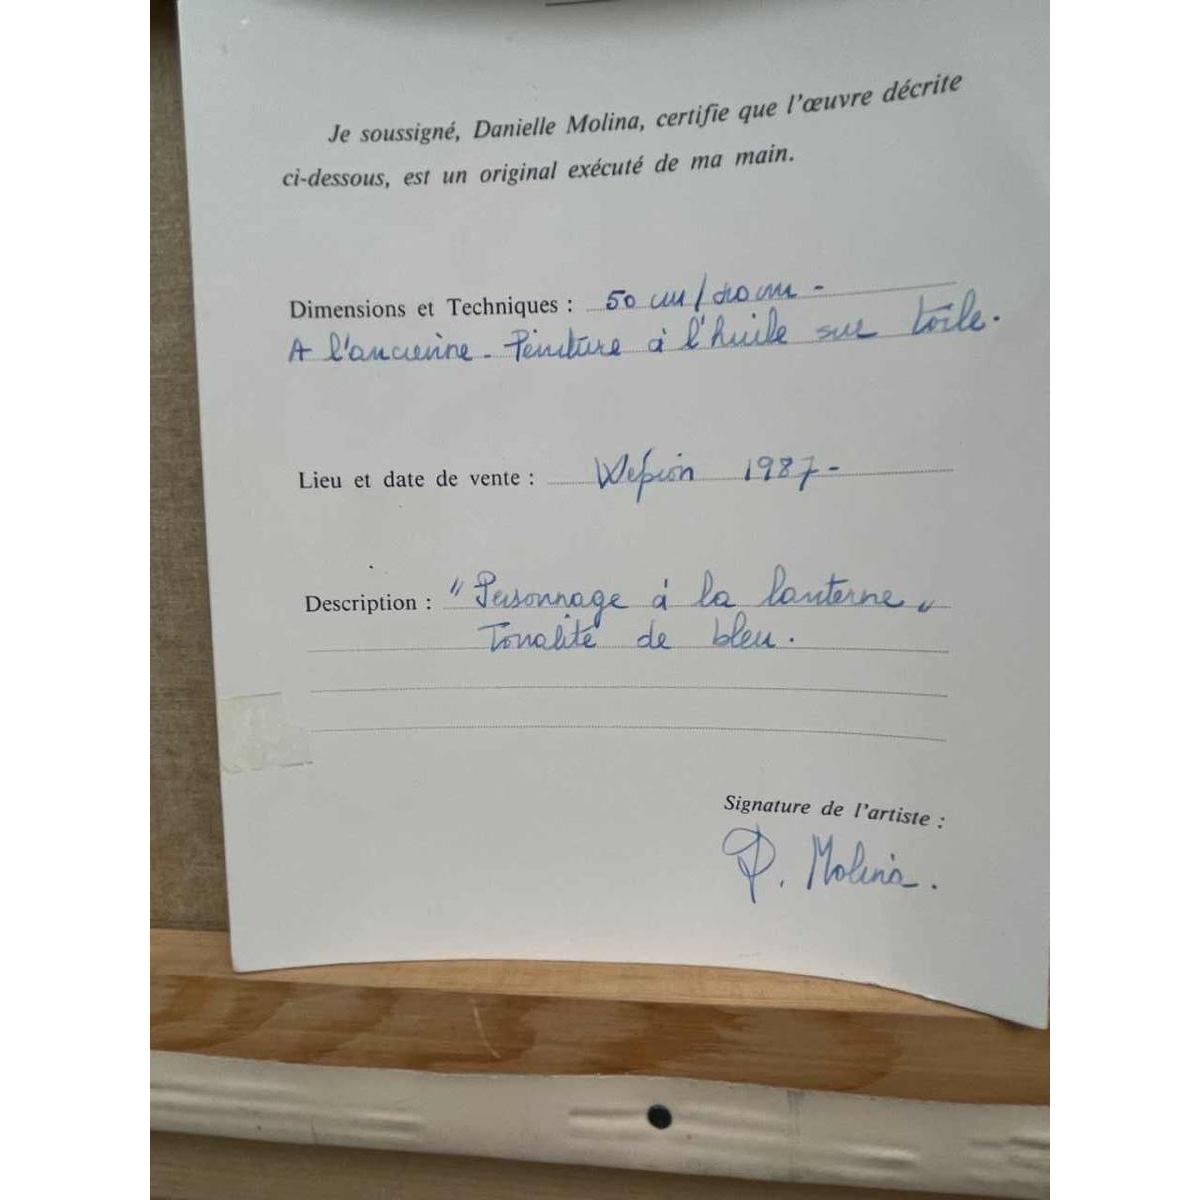 Je soussigné, Danielle Molina, certifie que l'œuvre décrite
ci-dessous, est un original exécuté de ma main.
Dimensions et Techniques : 50 cm / cm -
A l'ancienne - Peinture à l'huile sur toile.
Lieu et date de vente : Wepion 1987 -
Description : "Personnage à la lanterne"
Tonalité de bleu.
Signature de l'artiste :
D. Molina.